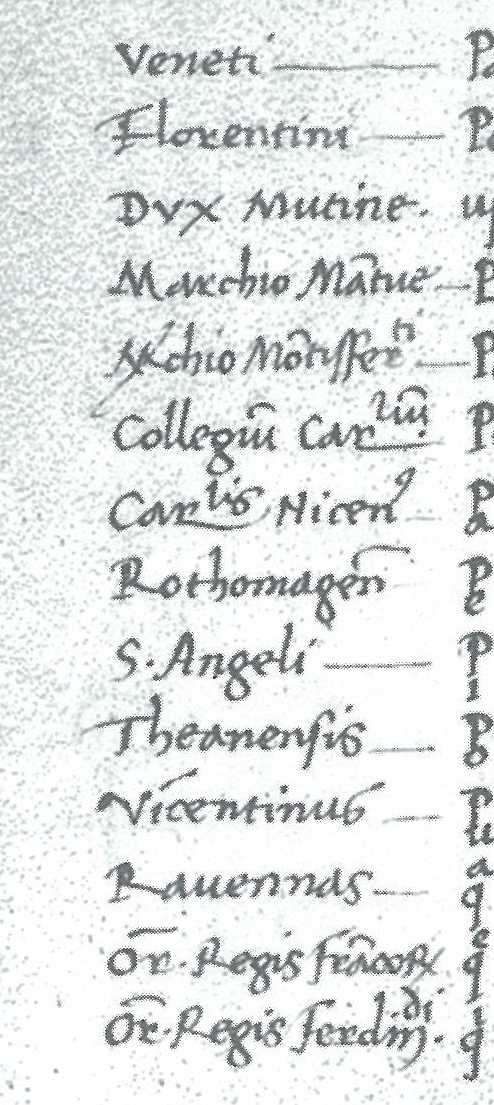 Veneti — P
Florentini — P
Dvx Mutine.
Marchio Mãtue — P
Mchio Mõtisferti — P
Collegiũ Carliũ. P
Carlis Nicen9 P a
Rothomageñ P e
S. Angeli — P i
Theanensis — P o
Vicentinus — P
Rauennas — a q
Or̃. Regis frãcoꝝ e q
Or̃. Regis ferdiñdi. i q